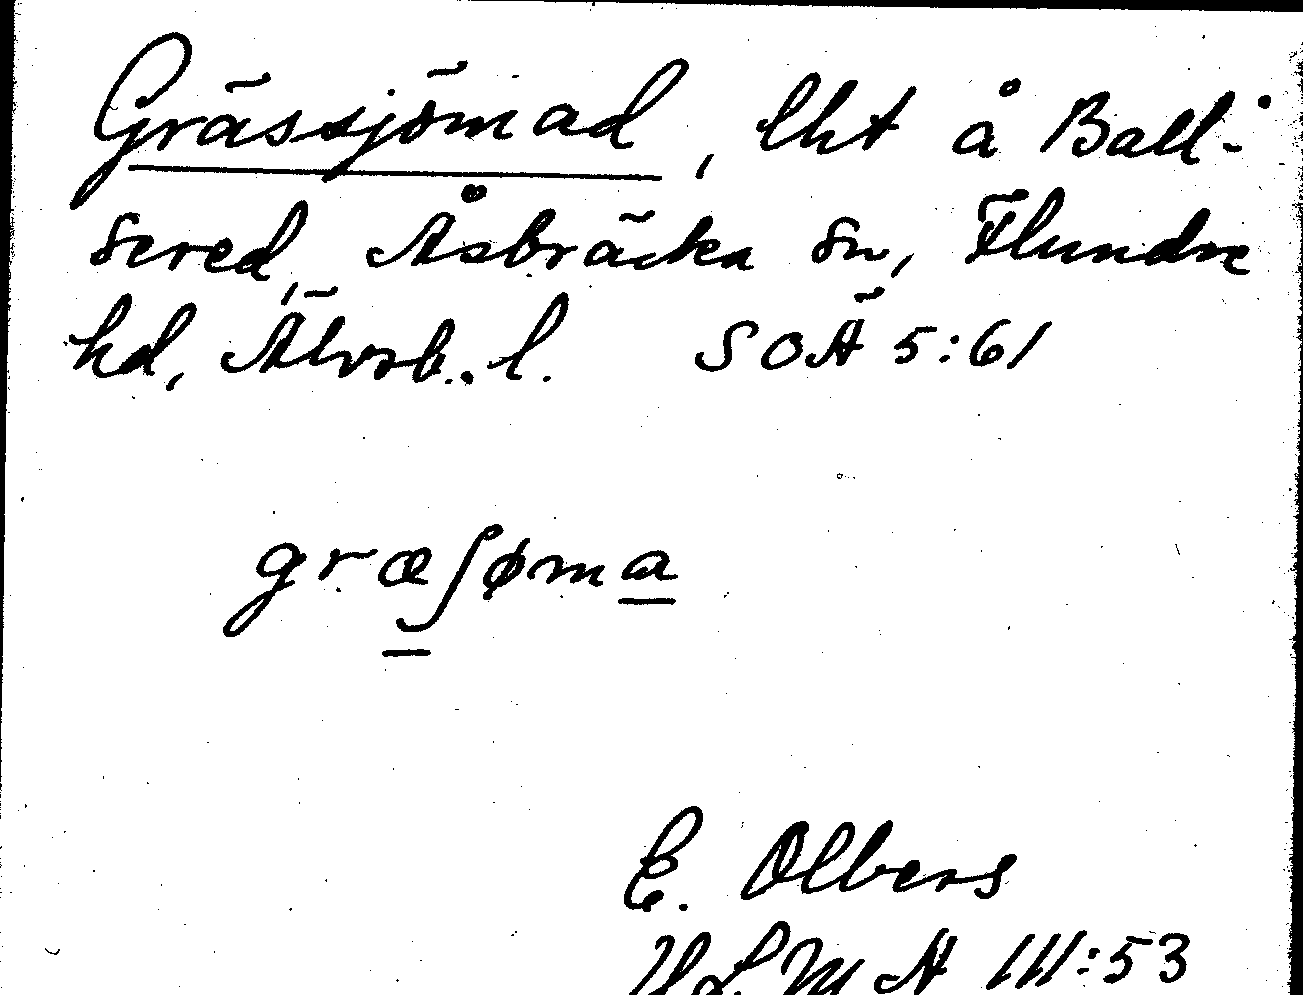 Grässjömad, lht å Ball-
sered, Åsbräcka sn, Flundre
hd, Älvsb. l. SOÄ 5:61
græʃøma
E. Olbers
III:53